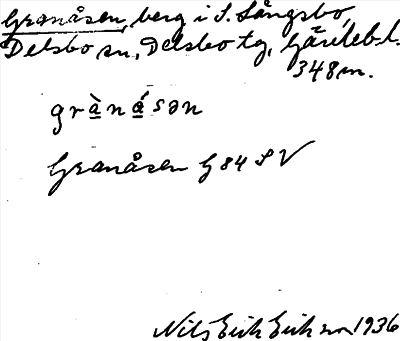 Granåsen, berg i S. Långsbo,
Delsbo sn, Delsbo tg, Gävleb. l.
348 m.
grànásən
Granåsen G 84 SV
Nils Erik Eriksson 1936